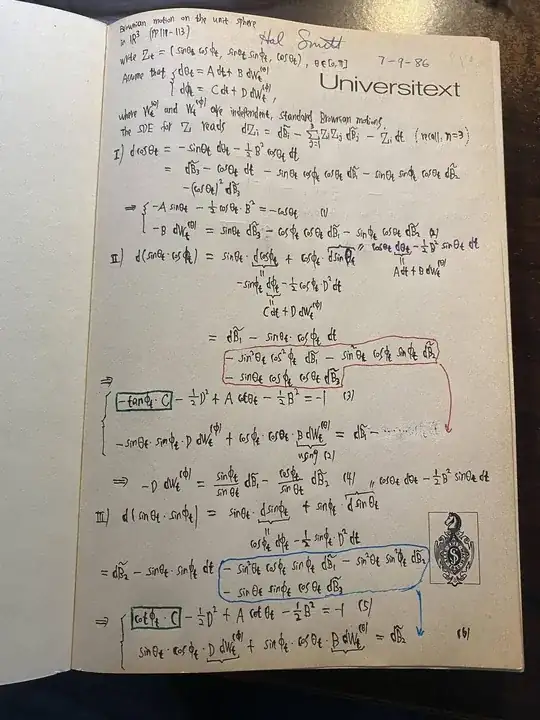 Brownian motion on the unit sphere
in ℝ³ (pp 111-113)
Hal Smith
7-9-86
Universitext
write Z_t = (sinθ_t cosϕ_t, sinθ_t sinϕ_t, cosθ_t), θ∈[0,π]
Assume that { dθ_t = A dt + B dW_t^(θ)
dϕ_t = C dt + D dW_t^(ϕ),
where W_t^(θ) and W_t^(ϕ) are independent, standard Brownian motions.
The SDE for Z_i reads dZ_i = dB̃_i - Σ_{j=1}^3 Z_i Z_j dB̃_j - Z_i dt (recall, n=3)
I) d cosθ_t = -sinθ_t dθ_t - ½ B² cosθ_t dt
= dB̃_3 - cosθ_t dt - sinθ_t cosϕ_t cosθ_t dB̃_1 - sinθ_t sinϕ_t cosθ_t dB̃_2
- (cosθ_t)² dB̃_3
⇒ { -A sinθ_t - ½ cosθ_t · B² = -cosθ_t (1)
-B dW_t^(θ) = sinθ_t dB̃_3 - cosϕ_t cosθ_t dB̃_1 - sinϕ_t cosθ_t dB̃_2 (2)
II) d(sinθ_t · cosϕ_t) = sinθ_t · d cosϕ_t + cosϕ_t · d sinθ_t
" cosθ_t dθ_t - ½ B² sinθ_t dt
-sinϕ_t dϕ_t - ½ cosϕ_t · D² dt
A dt + B dW_t^(θ)
C dt + D dW_t^(ϕ)
= dB̃_1 - sinθ_t · cosϕ_t dt
- sin²θ_t cos²ϕ_t dB̃_1 - sin²θ_t cosϕ_t sinϕ_t dB̃_2
- sinθ_t cosϕ_t cosθ_t dB̃_3
⇒
{ -tanϕ_t · C - ½ D² + A cotθ_t - ½ B² = -1 (3)
-sinθ_t · sinϕ_t · D dW_t^(ϕ) + cosϕ_t · cosθ_t · B dW_t^(θ) = dB̃_1 - ......
using (2)
⇒ -D dW_t^(ϕ) = sinϕ_t/sinθ_t dB̃_1 - cosϕ_t/sinθ_t dB̃_2 (4)
" cosθ_t dθ_t - ½ B² sinθ_t dt
III) d(sinθ_t · sinϕ_t) = sinθ_t · d sinϕ_t + sinϕ_t · d sinθ_t
cosϕ_t dϕ_t - ½ sinϕ_t · D² dt
= dB̃_2 - sinθ_t · sinϕ_t dt - sin²θ_t cosϕ_t sinϕ_t dB̃_1 - sin²θ_t sin²ϕ_t dB̃_2
- sinθ_t sinϕ_t cosθ_t dB̃_3
⇒ { cotϕ_t · C - ½ D² + A cotθ_t - ½ B² = -1 (5)
sinθ_t · cosϕ_t · D dW_t^(ϕ) + sinϕ_t · cosθ_t · B dW_t^(θ) = dB̃_2 (6)